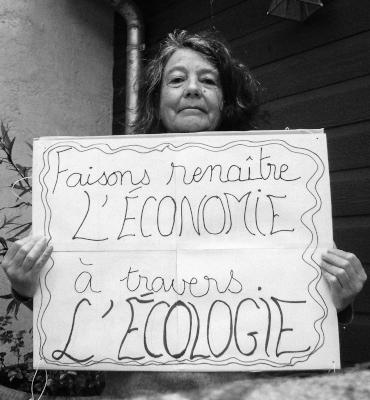 Faisons renaître
L'ÉCONOMIE
à travers
L'ÉCOLOGIE